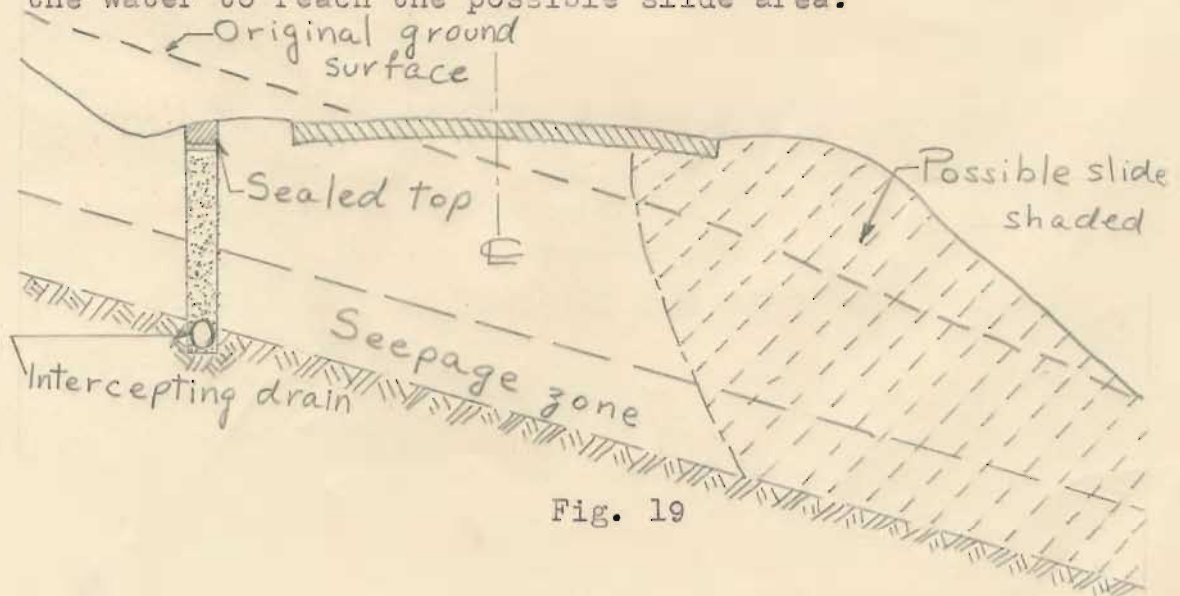 the water to reach the possible slide area.
Original ground
surface
Sealed top
℄
Possible slide
shaded
Seepage zone
Intercepting drain
Fig. 19